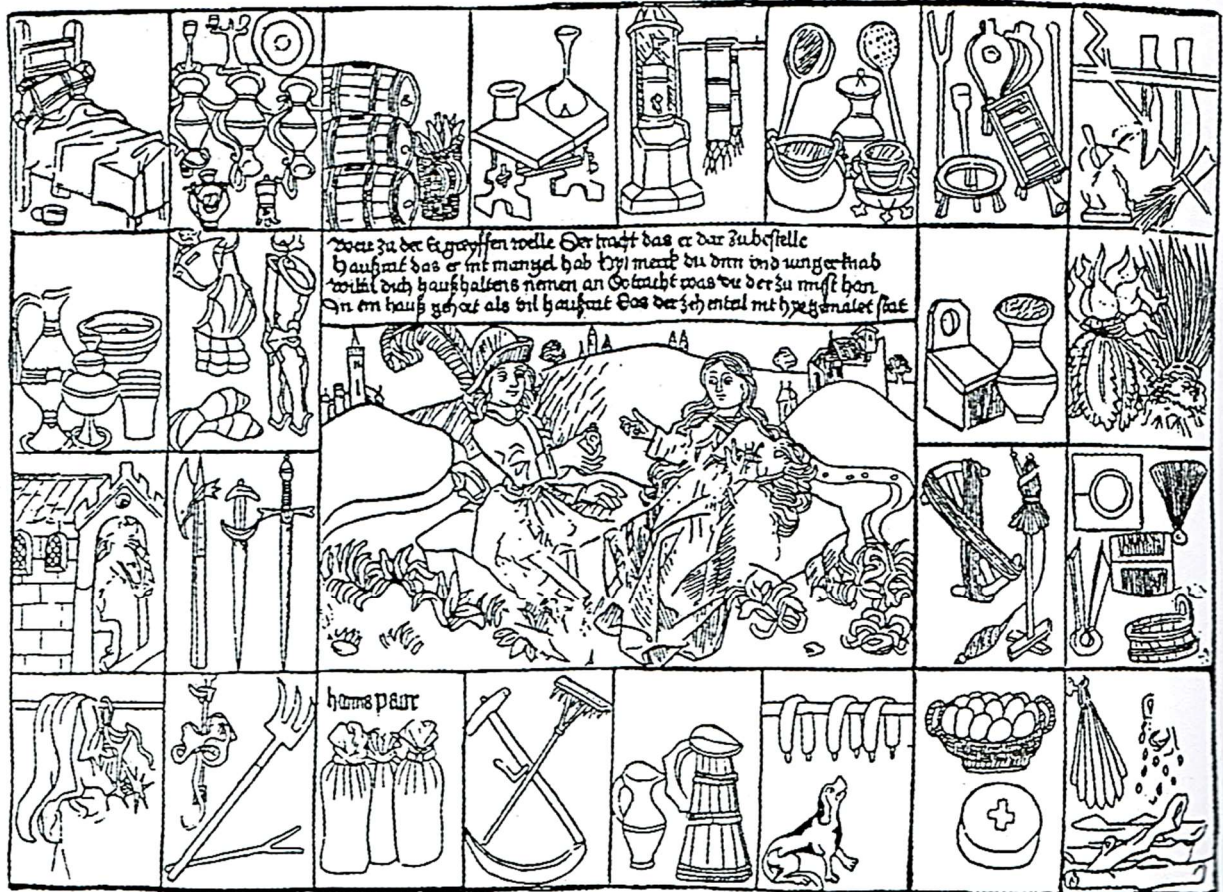 Wer zu der Ee greyffen welle Der tracht das er dar zu bestelle
Haußrat das er nit mangel hab Hyl merck du dirn und iunger knab
Wiltu dich haußhaltens nemen an So tracht was du der zu must han
In ein hauß gehort als vil haußrat Das der zehentail nit hye gemalet stat
hanns paur